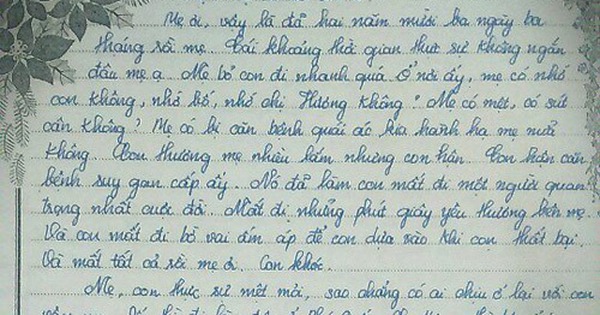 Mẹ ơi, vậy là đã hai năm mười ba ngày ba
tháng rồi mẹ. Cái khoảng thời gian thực sự không ngắn
đâu mẹ ạ. Mẹ bỏ con đi nhanh quá. Ở nơi ấy, mẹ có nhớ
con không, nhớ bố, nhớ chị Hương không? Mẹ có mệt, có sút
cân không? Mẹ có bị căn bệnh quái ác kia hành hạ mẹ nữa
không. Con thương mẹ nhiều lắm nhưng con hận. Con hận căn
bệnh suy gan cấp ấy. Nó đã làm con mất đi một người quan
trọng nhất cuộc đời. Mất đi những phút giây yêu thương bên mẹ.
Và con mất đi bờ vai ấm áp để con dựa vào khi con thất bại.
Và mất tất cả rồi mẹ ơi. Con khóc.
Mẹ, con thực sự mệt mỏi, sao chẳng có ai chịu ở lại với con